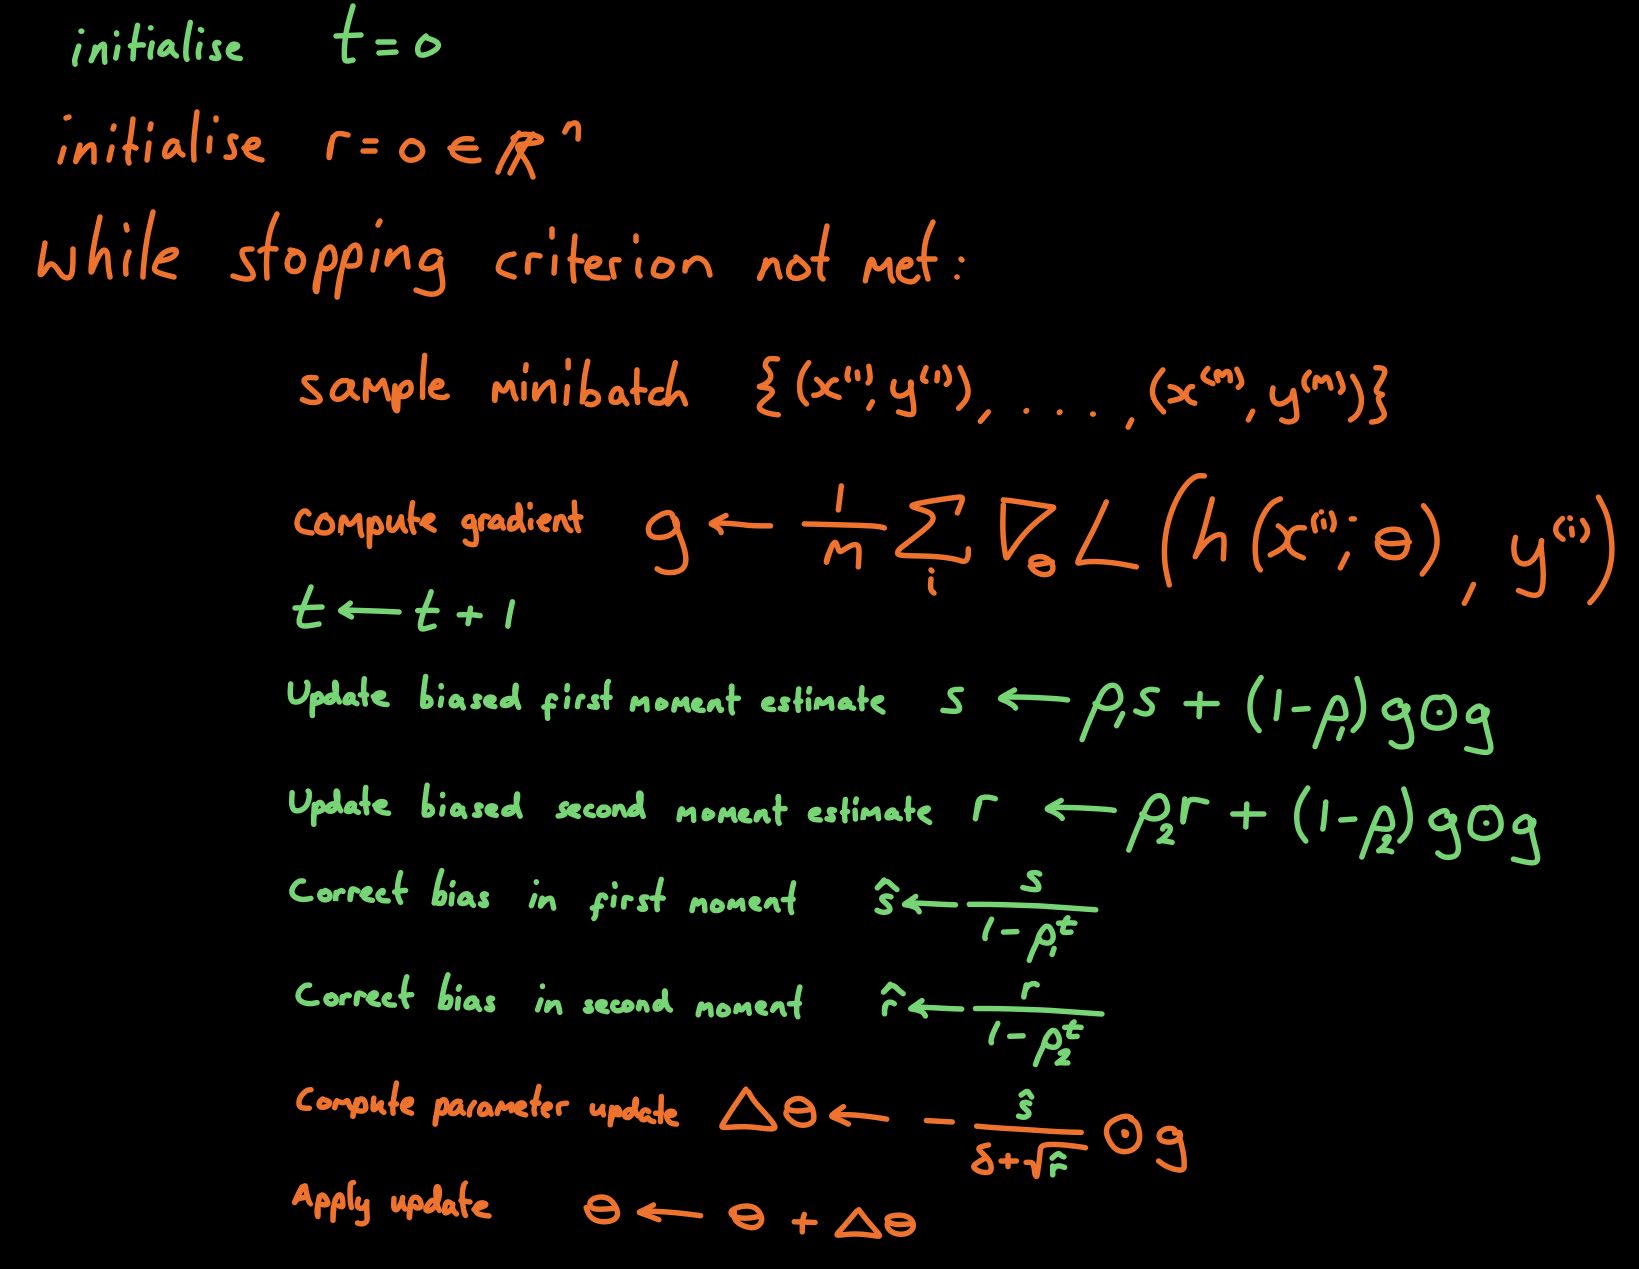 initialise t = 0
initialise r = 0 ∈ ℝⁿ
while stopping criterion not met:
sample minibatch {(x⁽¹⁾, y⁽¹⁾), . . . . , (x⁽ᵐ⁾, y⁽ᵐ⁾)}
compute gradient g ← 1/m Σᵢ ∇_θ L(h(x⁽ⁱ⁾; θ), y⁽ⁱ⁾)
t ← t + 1
Update biased first moment estimate s ← ρ₁s + (1-ρ₁) g⊙g
Update biased second moment estimate r ← ρ₂r + (1-ρ₂) g⊙g
Correct bias in first moment ŝ ← s/(1-ρ₁ᵗ)
Correct bias in second moment r̂ ← r/(1-ρ₂ᵗ)
Compute parameter update Δθ ← - ŝ/(δ+√r̂) ⊙ g
Apply update θ ← θ + Δθ